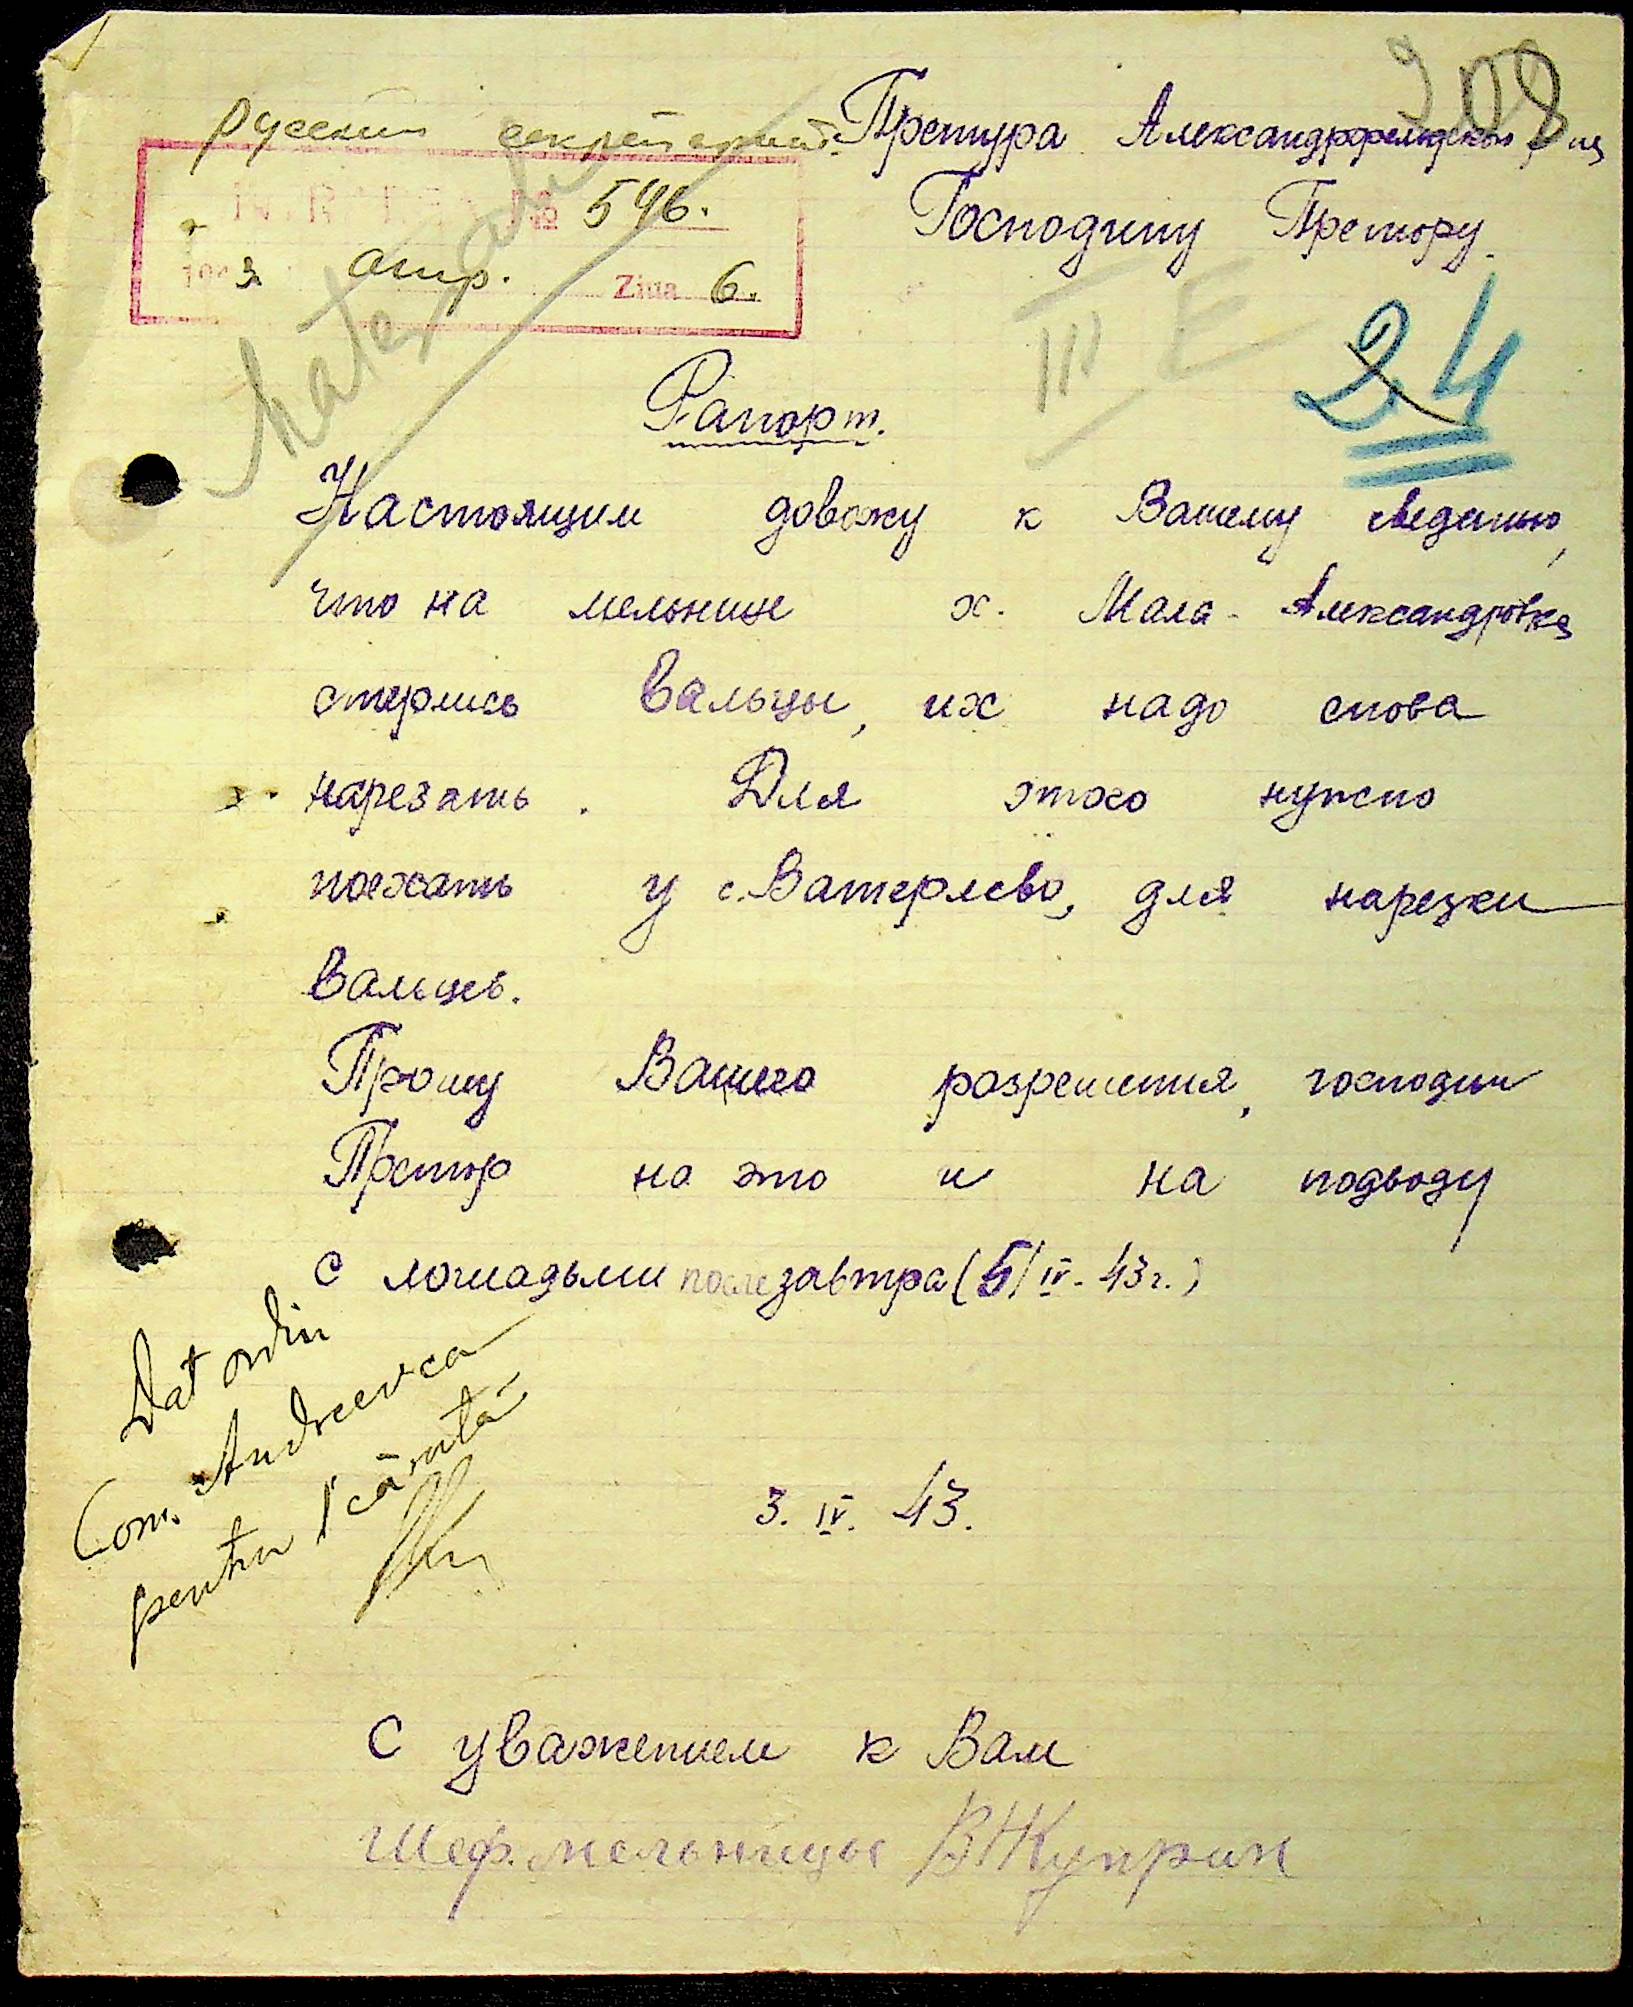 208
русский секретариат
Претура Александрфельдского р-на
INTRAREA № 546.
Господину Претору.
1943 апр. Ziua 6.
III E
24
Рапорт.
Настоящим довожу к Вашему сведению,
что на мельнице х. Мала-Александровка
стерлись вальцы, их надо снова
нарезать. Для этого нужно
поехать у с. Ватерлево, для нарезки
вальцев.
Прошу Вашего разрешения, господин
Претор на это и на подводу
с лошадьми послезавтра (5/IV-43г.)
Dat ordin
Com. Andreevca
pentru 1 căruţă
3. IV. 43.
С уважением к Вам
Шеф. мельницы В Куприн